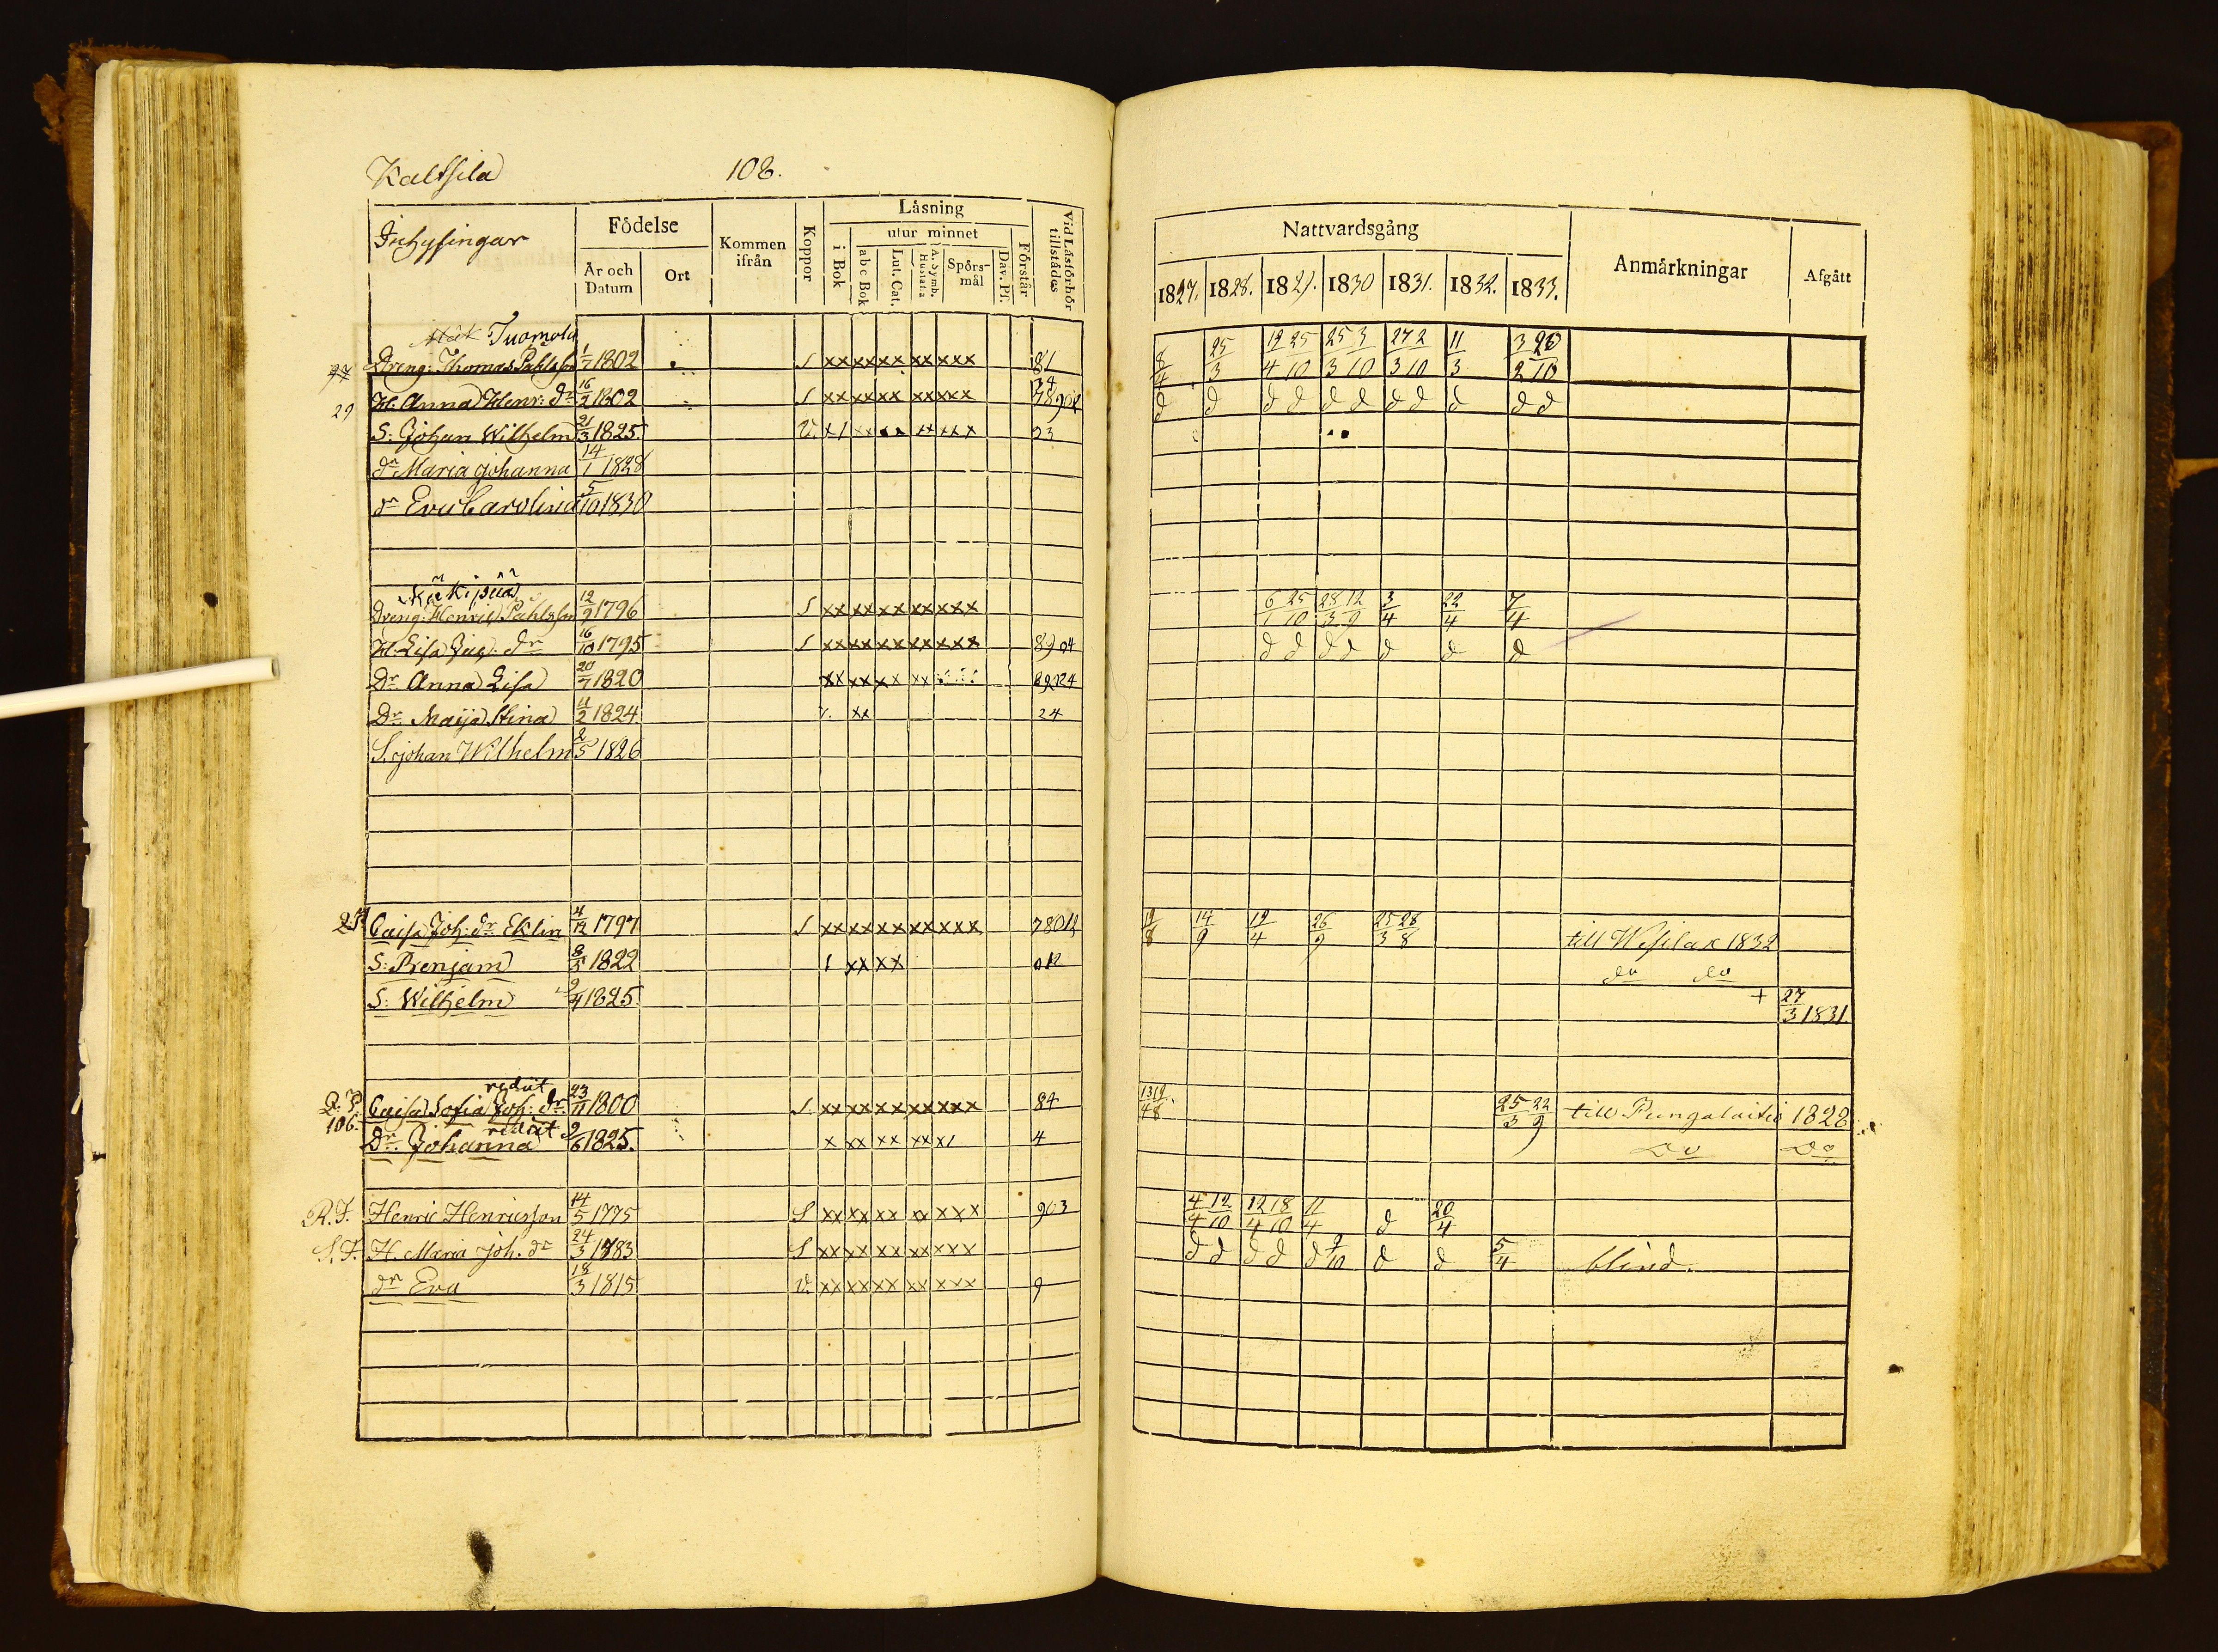 Kaltsila 108.
Inhysingar Födelse Kommen ifrån Koppor Läsning Vid Läsförhör tillstädes
År och Datum Ort i Bok utur minnet abc Bok Lut. Cat. A. Symb. Hustafla Spörsmål Dav. Ps. Förstår
Nattvardsgång Anmärkningar Afgått
1827. 1828. 1829. 1830 1831. 1832. 1833.
Tuomola
27 Dreng: Thomas Pahlsson 1/7 1802 S xx xx xx xx xxx 81 8/4 25/3 12/4 25/10 25/3 3/10 27/3 2/10 11/3 3/2 20/10
29 H: Anna Henr: dr 16/2 1802 S xx xx xx xx xxx d d d d d d d d d d d
S: Johan Wilhelm 21/3 1825. V. x/ xx xx xxx 23
dr Maria Johanna 14/1 1828
dr Eva Carolina 5/10 1830
Mäkipää
Dreng: Henric Pahlsson 12/9 1796 S xx xx xx xx xxx 6/1 25/10 28/3 12/9 3/4 22/4 7/4
H. Lisa Jac: dr 16/10 1795 S xx xx xx xx xxx 8904 d d d d d d d
Dr Anna Lisa 20/7 1820 xx xx xx xx 89024
Dr Maija Stina 4/2 1824 v. xx 24
S. Johan Wilhelm 2/5 1826
Caisa Joh: dr Eklin 4/12 1797 S xx xx xx xx xxx 78012 12/8 14/9 12/4 26/9 25/3 28/8 till Wesilax 1832
S: Benjam 8/5 1822 / xx xx 012 do do
S: Wilhelm 9/4 1825. + 27/3 1831.
rediit
106. Caisa Sofia Joh: dr 23/11 1800 S. xx xx xx xx xxx 84 13/4 12/8 25/3 22/9 till Pungalaitio 1828
rediit
Dr. Johanna 9/6 1825. x xx xx xx x/ 4 Do Do
R.F. Henric Henricsson 14/5 1775 S xx xx xx xx xxx 903 4/4 12/10 12/4 18/10 11/4 d 20/4
S.F. H. Maria Joh. dr 24/3 1783 S xx xx xx xx xxx d d d d d 9/10 d d 5/4 blind.
dr Eva 18/3 1815 V. xx xx xx xx xxx 9